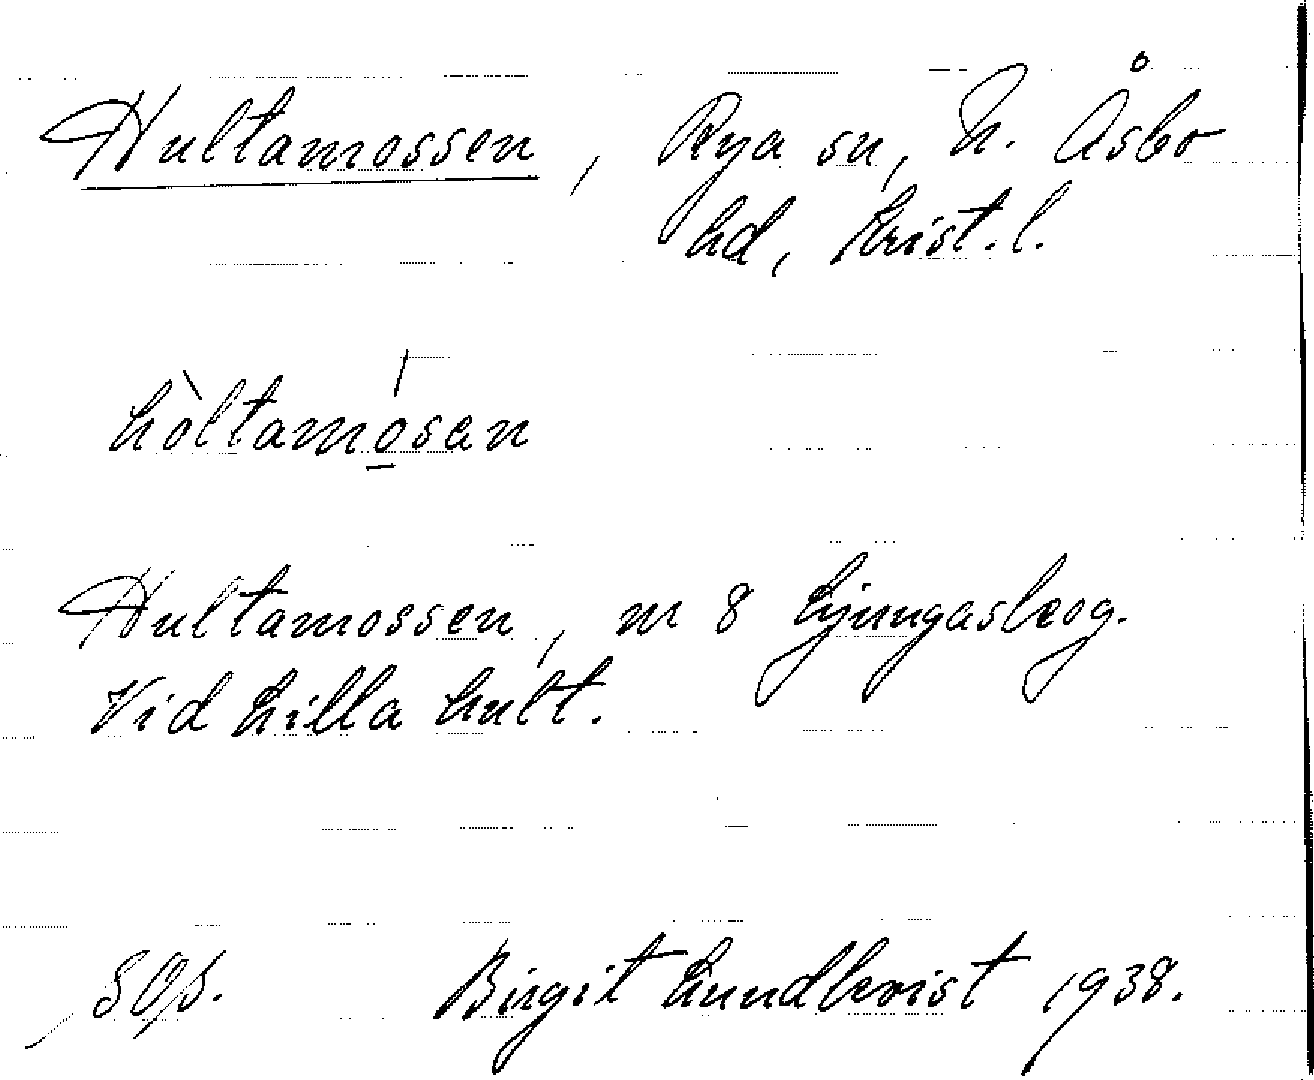 Hultamossen, Rya sn, N. Åsbo
hd, Krist. l.
hòltamósan
Hultamossen, m 8 Ljungaskog.
Vid Lilla hult.
SOp. Birgit Lundkvist 1938.